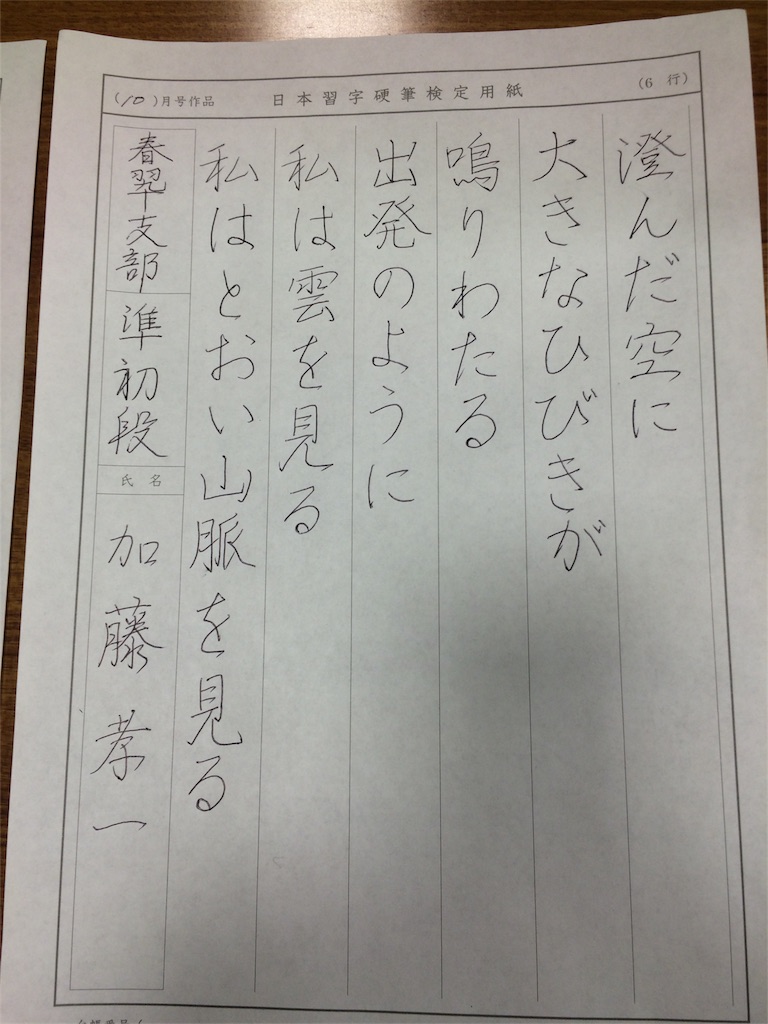 (10)月号作品 日本習字硬筆検定用紙 (6 行)
澄んだ空に
大きなひびきが
鳴りわたる
出発のように
私は雲を見る
私はとおい山脈を見る
春翠支部 準初段
氏名
加藤孝一